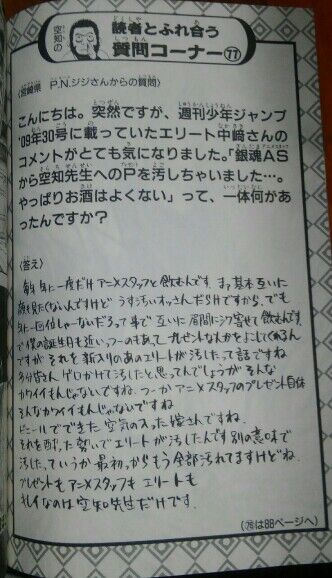 空知の
読者とふれ合う
質問コーナー77
〈宮崎県　P.N.ジジさんからの質問〉
こんにちは。突然ですが、週刊少年ジャンプ
'09年30号に載っていたエリート中﨑さんの
コメントがとても気になりました。「銀魂AS
から空知先生へのPを汚しちゃいました…。
やっぱりお酒はよくない」って、一体何があ
ったんですか？
〈答え〉
毎年 年に一度だけアニメスタッフと飲むんです。まァ基本互いに
顔見たくないんですけど うす汚いオッさんだらけですから、でも
年に一回位しゃーないだろって事で互いに眉間にシワ寄せて飲むんです。
で僕の誕生日も近い つーのもあって プレゼントなんかをよこしてくるん
ですが それを新入りのあのエリートが汚したって話ですね
多分皆さん ゲロかけて汚したと思ってんでしょうが そんな
カワイイもんじゃないですね。つーか アニメスタッフのプレゼント自体
そんなカワイイもんじゃないですね
ビニールでできた 空気の入った嫁さんですね。
それを酔った勢いでエリートが汚したんです 別の意味で
汚した、ていうか 最初っからもう全部汚れてますけどね。
プレゼントも アニメスタッフも エリートも
キレイなのは空知先生だけです。
(78は88ページへ)